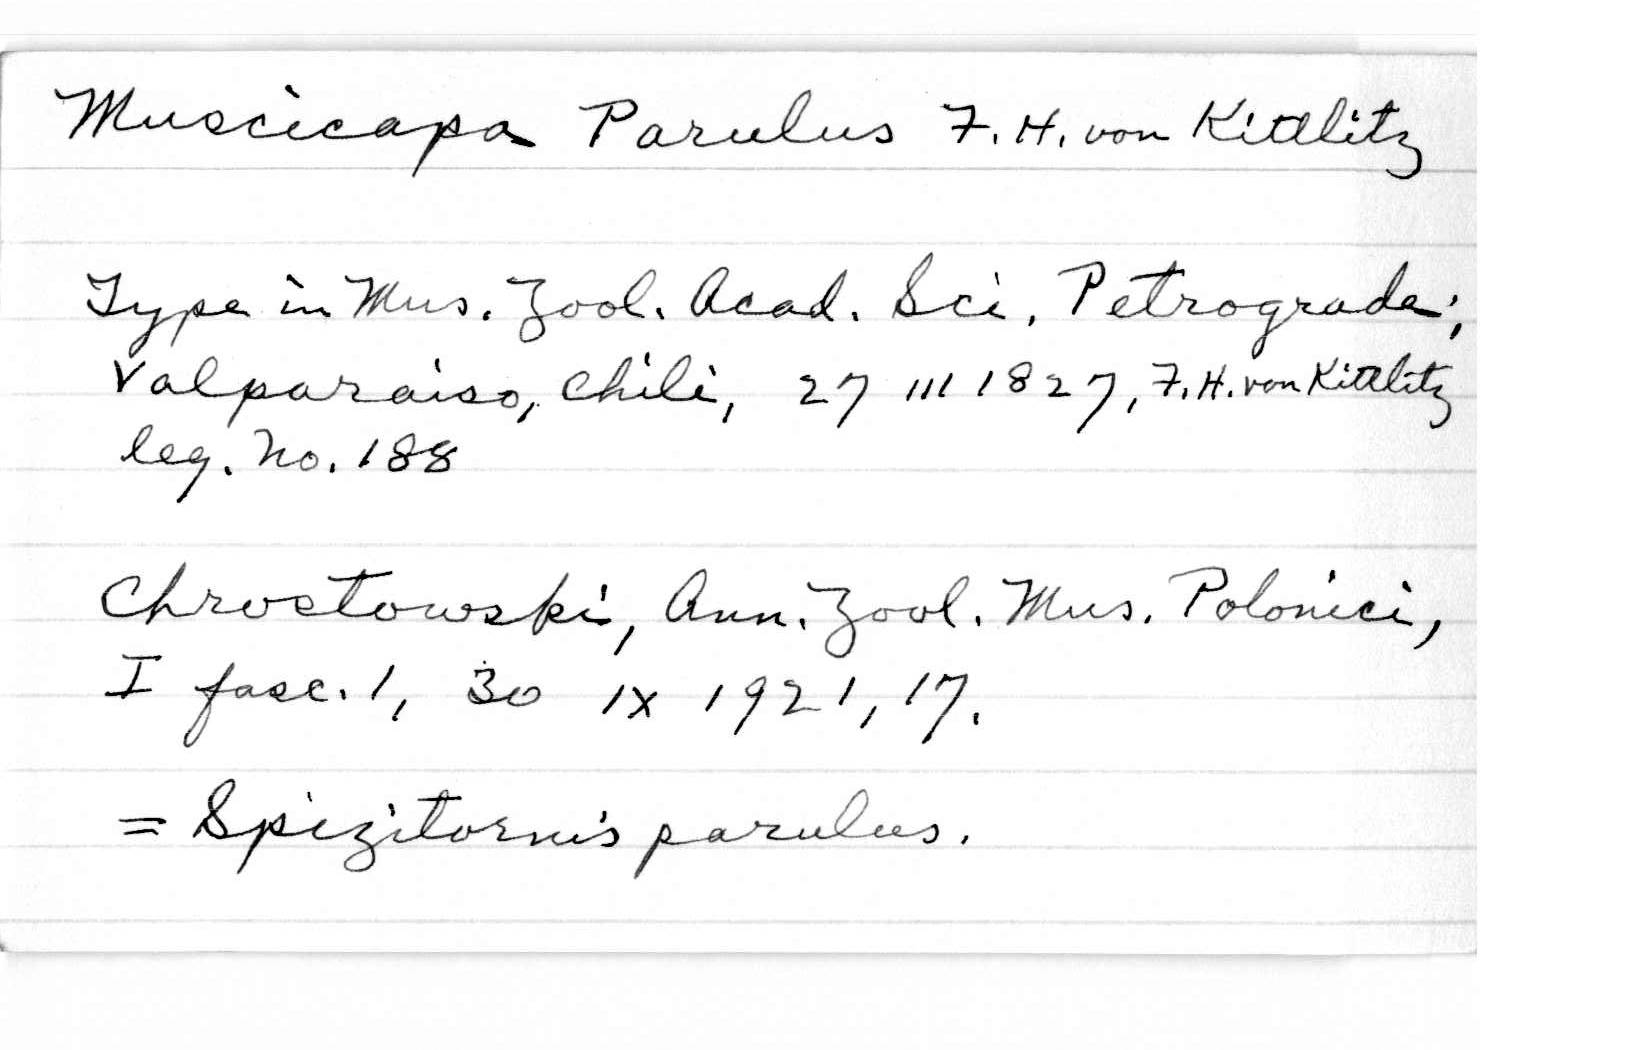 Muscicapa Parulus F. H. von Kittlitz
Type in Mus. Zool. Acad. Sci. Petrograde;
Valparaiso, Chili, 27 III 1827, F. H. von Kittlitz
leg. No. 188
Chrostowski, Ann. Zool. Mus. Polonici,
I fasc. 1, 30 IX 1921, 17.
= Spizitornis parulus.